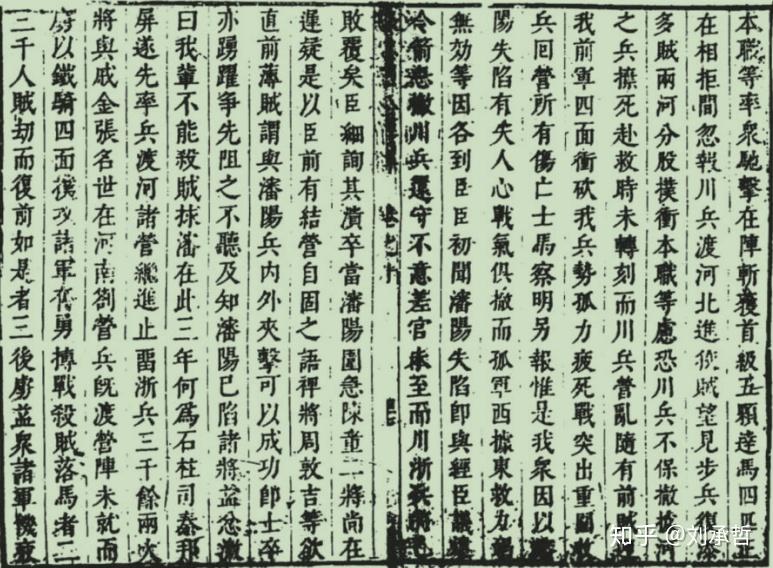 本職等率衆馳擊在陣斬獲首級五顆達馬四匹正
在相拒間忽報川兵渡河北進後賊望見步兵復添
多賊兩河分股撲衝本職等慮恐川兵不保撤 河
之兵捨死赴救時未轉刻而川兵營亂隨有前賊
我前軍四面衝砍我兵勢孤力疲死戰突出重圍收
兵囘營所有傷亡士馬察明另報惟是我衆因以瀋
陽失陷有失人心戰氣俱撤而孤軍西據東救力
無効等因各到臣臣初聞瀋陽失陷卽與經臣議
令箭 撤川兵還守不意差官未至而川浙兵將
敗覆矣臣細詢其潰卒當瀋陽圍急陳童二將尚在
遲疑是以臣前有結營自固之語裨將周敦吉等欲
直前薄賊謂與瀋陽兵內外夾擊可以成功卽士卒
亦踴躍爭先阻之不聽及知瀋陽已陷諸將益忿激
曰我輩不能殺賊抹瀋在此三年何爲石柱司秦邦
屏遂先率兵渡河諸營繼進止畱浙兵三千餘兩
將與戚金張名世在河南劄營兵旣渡營陣未就而
虜以鐵騎四面復攻諸軍奮勇搏戰殺賊落馬者二
三千人賊劫而復前如是者三後虜益衆諸軍饑疲
知乎 @刘承哲